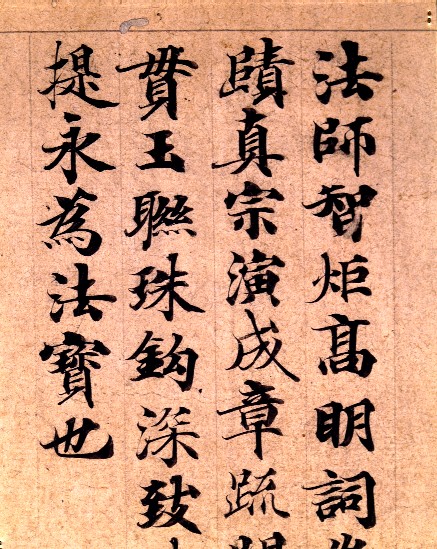 法師智炬高明詞
賾真宗演成章疏
貫玉聯珠鈎深致
提永為法寶也